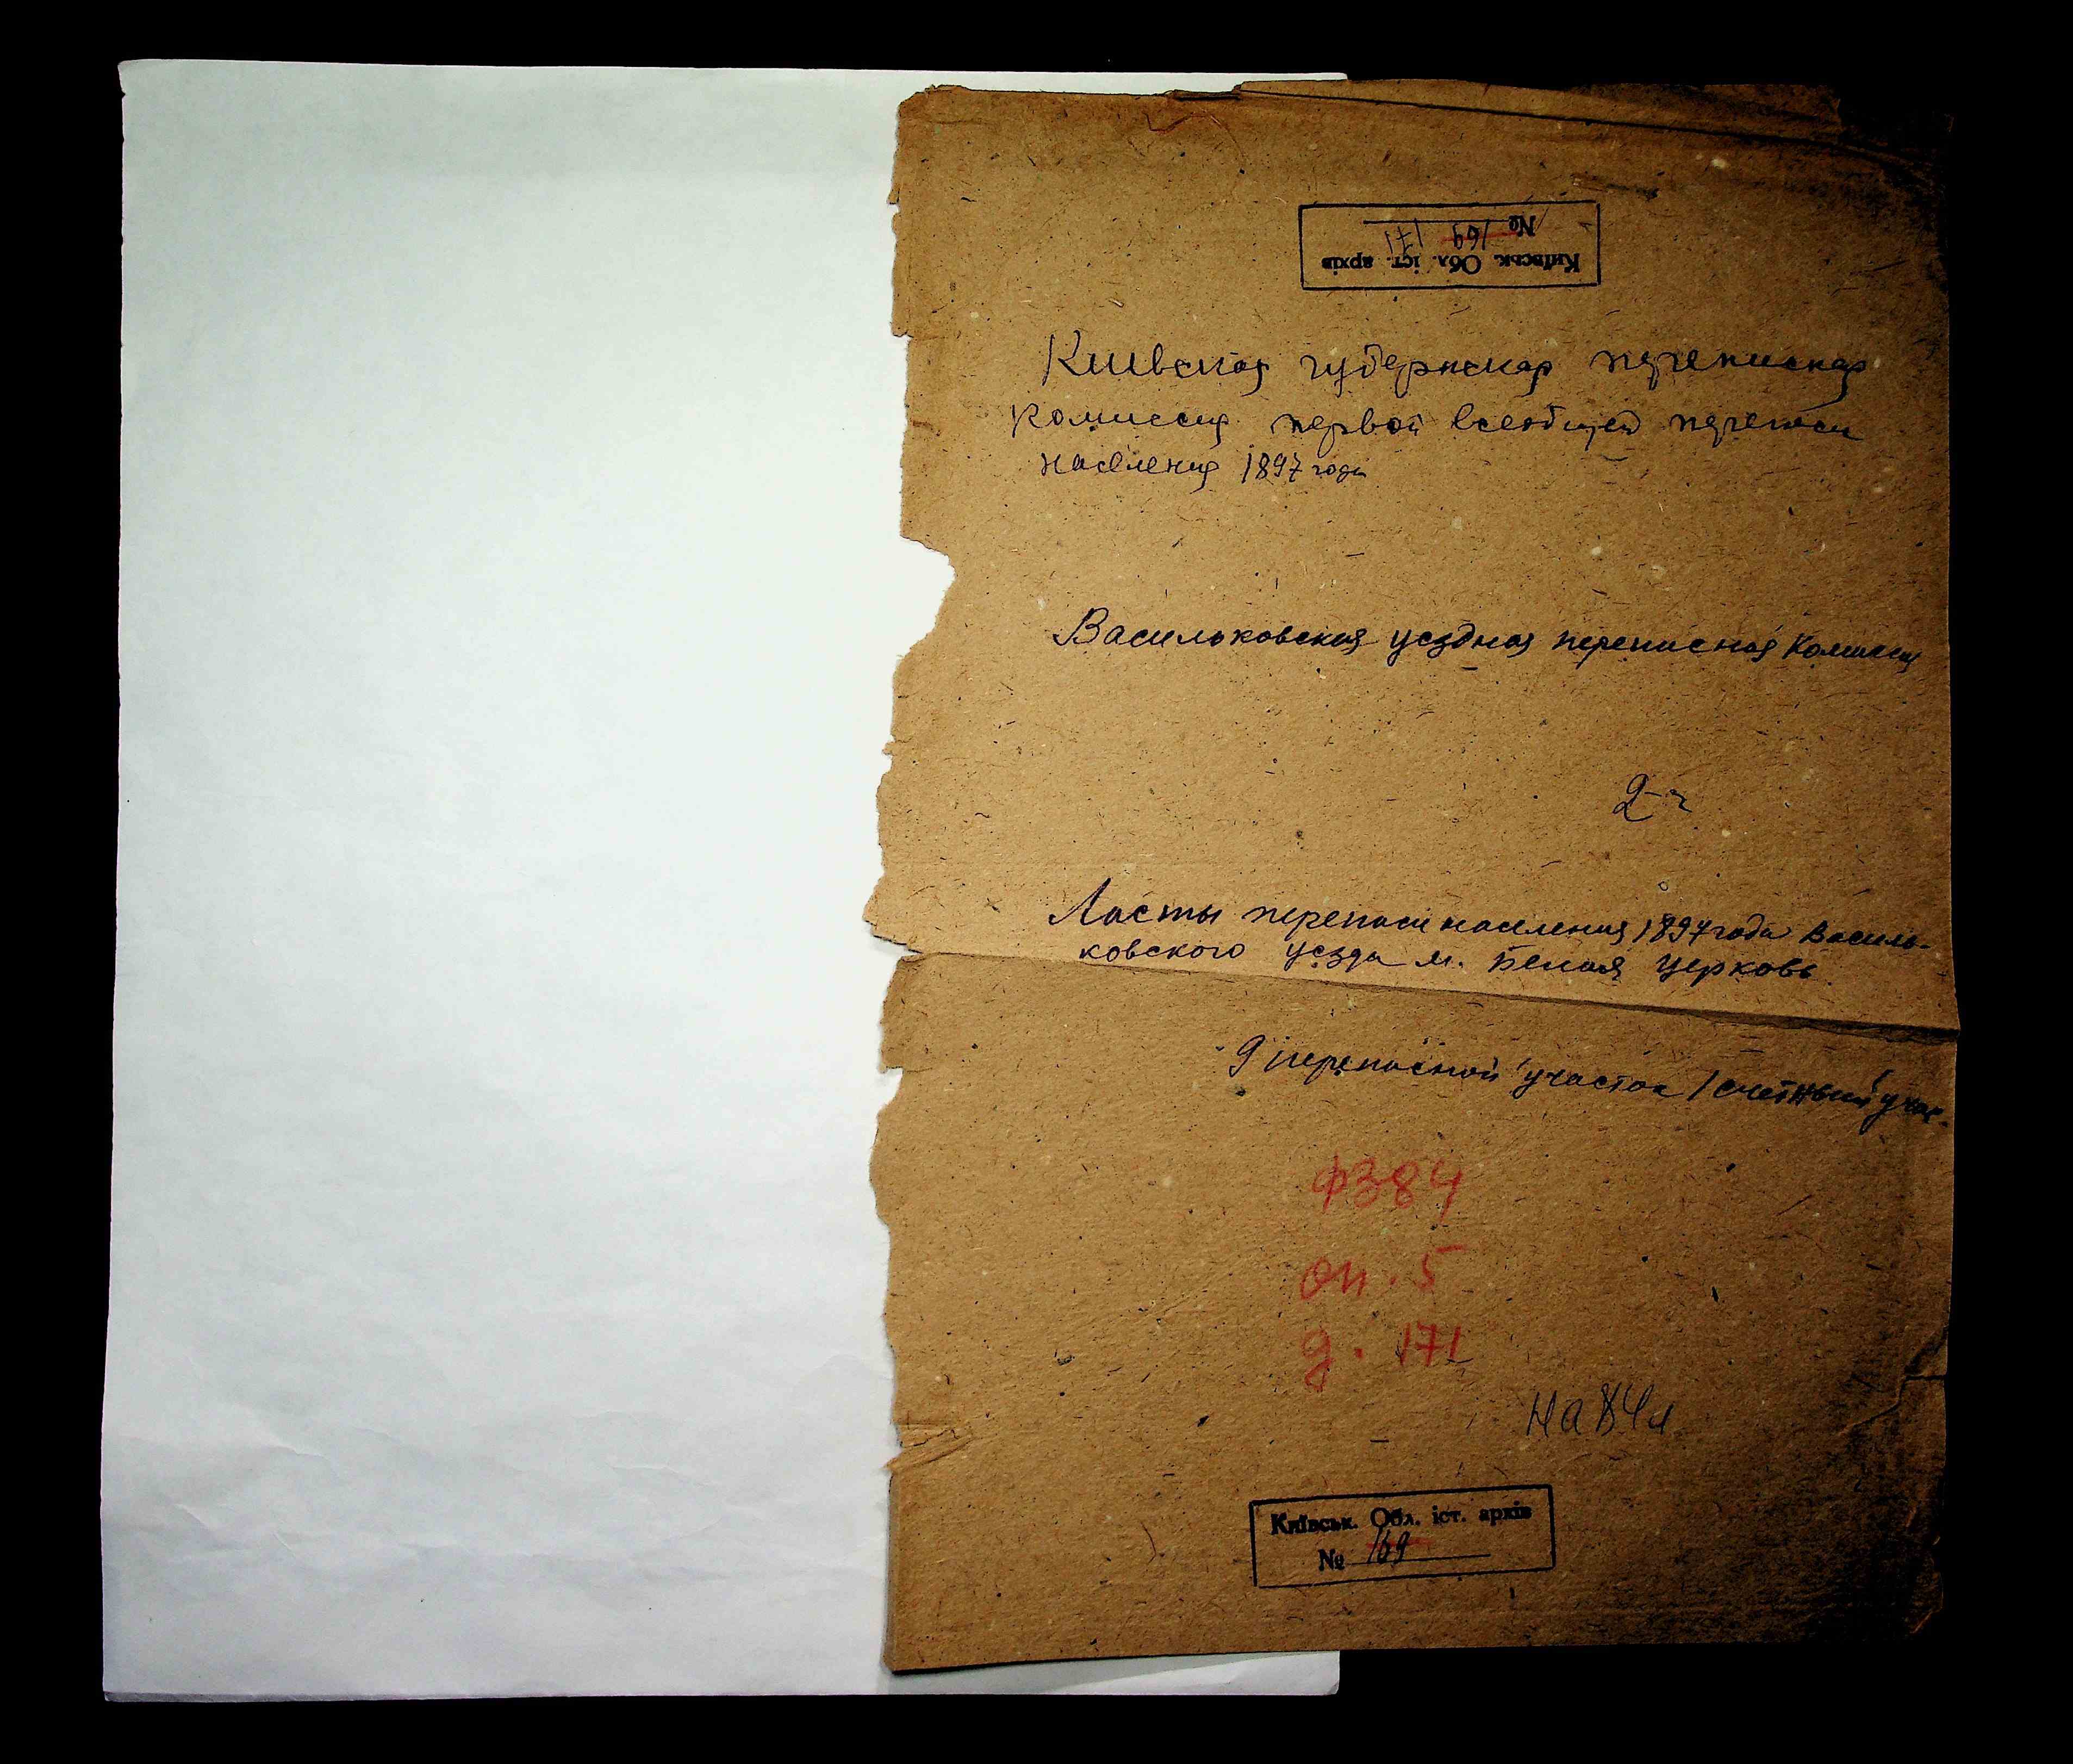 Київськ. Обл. іст. архів
№ 169 171
Киевская губернская переписная
комиссия первой всеобщей переписи
населения 1897 года
Васильковская уездная переписная комиссия
Листы переписи населения 1897 года Василь-
ковского уезда м. Белая Церковь.
9 переписной участок 1 счетный учас.
ф 384
оп. 5
д. 171
на 84 л
Київськ. Обл. іст. архів
№ 169